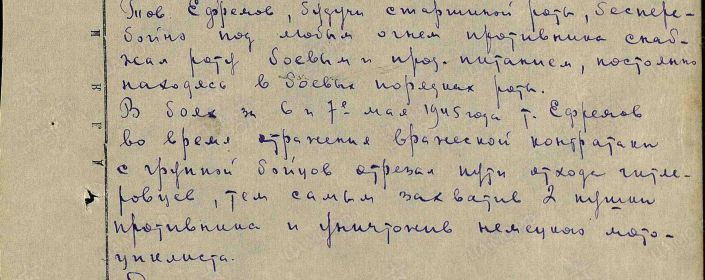 Тов. Ефремов, будучи старшиной роты, беспере-
бойно под любым огнем противника снаб-
жал роту боевым и прод. питанием, постоянно
находясь в боевых порядках роты.
В боях за 6 и 7е мая 1945 года т. Ефремов
во время отражения вражеской контратаки
с группой бойцов отрезал пути отхода гитле-
ровцев, тем самым захватив 2 пушки
противника и уничтожив немецкого мото-
циклиста.